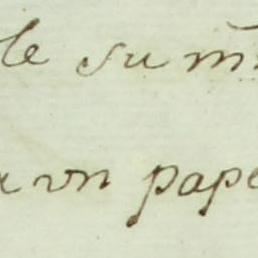 le su m
a vn pape